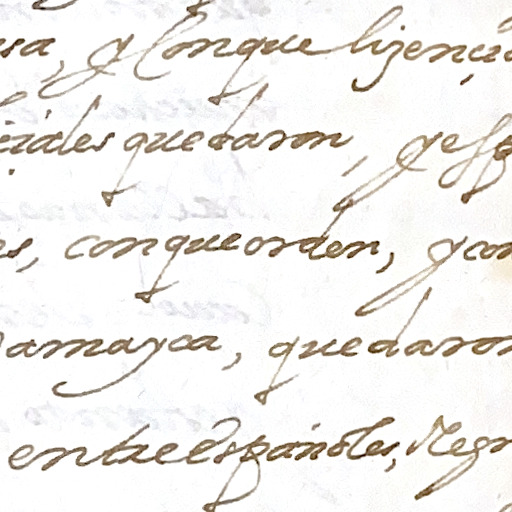 sa, y Conque lizenci
ciales quedaron, yesp
es, conqueorden, ycon
Jamayca, quedaron
entreespañoles, Negr